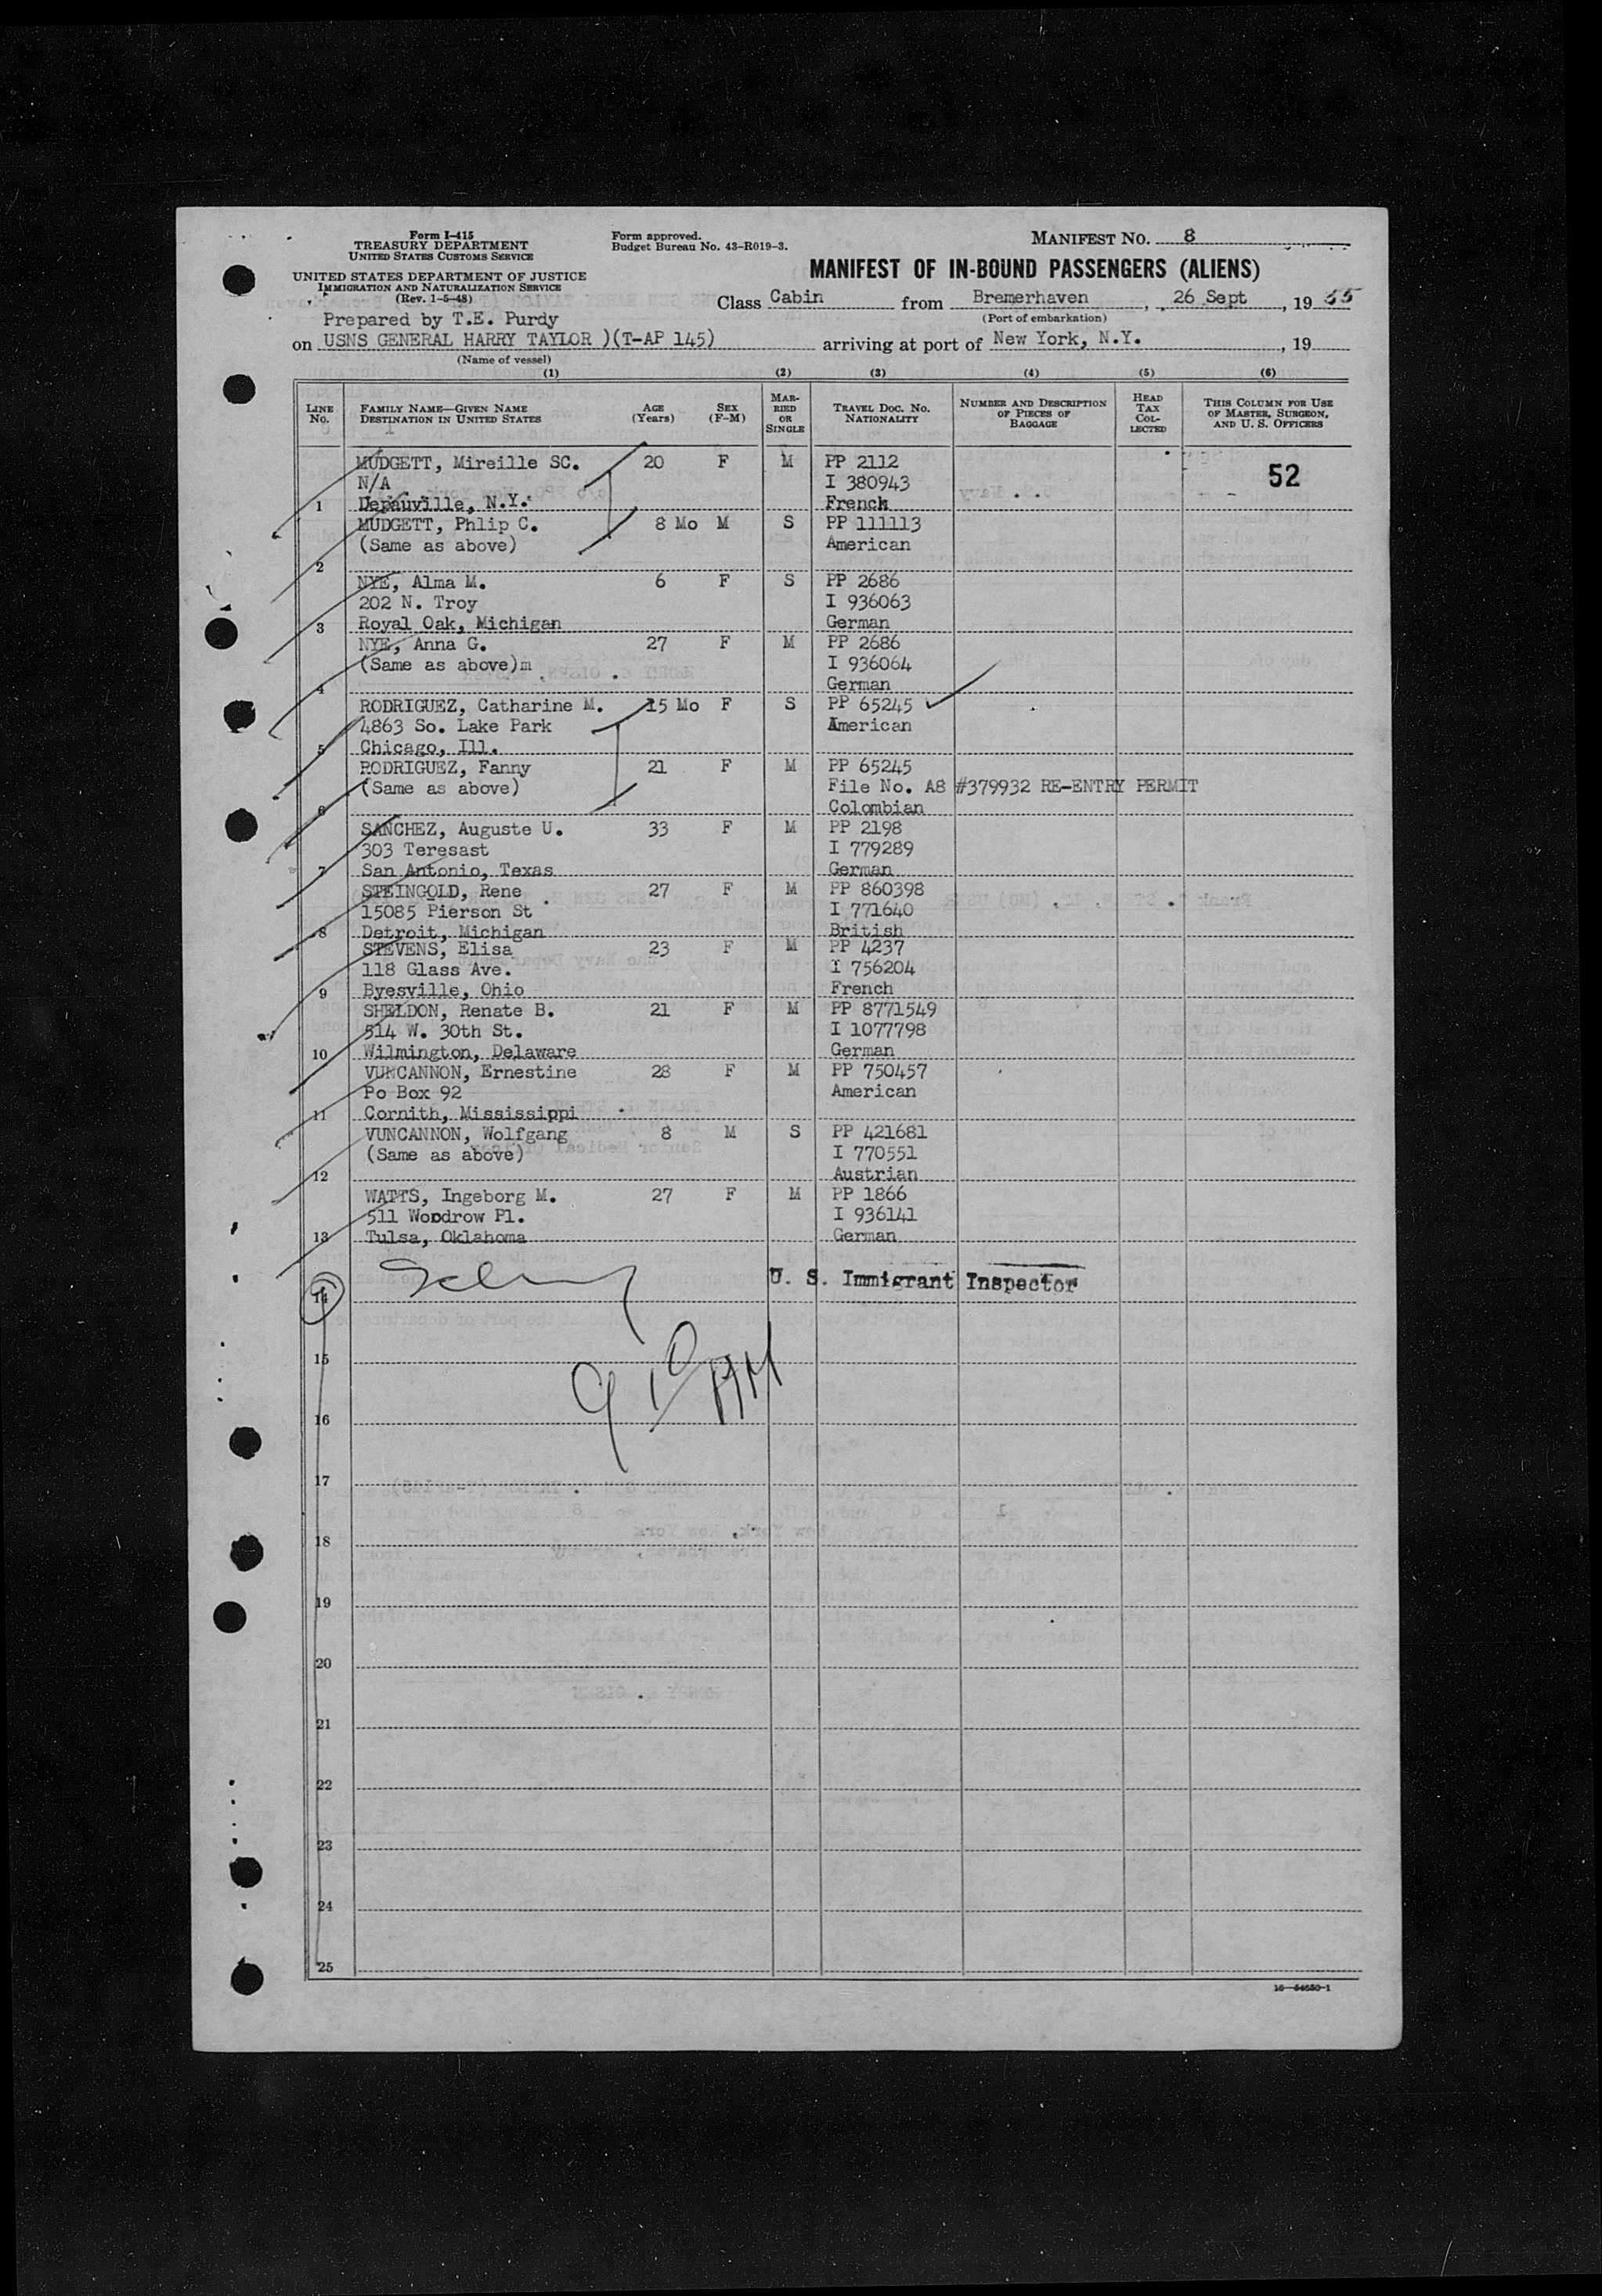 Form I-415
TREASURY DEPARTMENT
UNITED STATES CUSTOMS SERVICE
UNITED STATES DEPARTMENT OF JUSTICE
IMMIGRATION AND NATURALIZATION SERVICE
(Rev. 1-5-48)
Form approved.
Budget Bureau No. 43-R019-3.
MANIFEST NO. 8
MANIFEST OF IN-BOUND PASSENGERS (ALIENS)
Class Cabin from Bremerhaven, 26 Sept, 19 55
(Port of embarkation)
Prepared by T.E. Purdy
on USNS GENERAL HARRY TAYLOR )(T-AP 145) arriving at port of New York, N.Y., 19
(Name of vessel)
(1) (2) (3) (4) (5) (6)
LINE NO. FAMILY NAME—GIVEN NAME DESTINATION IN UNITED STATES AGE (Years) SEX (F-M) MARRIED OR SINGLE TRAVEL DOC. NO. NATIONALITY NUMBER AND DESCRIPTION OF PIECES OF BAGGAGE HEAD TAX COLLECTED THIS COLUMN FOR USE OF MASTER, SURGEON, AND U. S. OFFICERS
MUDGETT, Mireille SC. 20 F M PP 2112
N/A I 380943 52
1 Depauville, N.Y. French
MUDGETT, Phlip C. 8 Mo M S PP 111113
(Same as above) American
2
NYE, Alma M. 6 F S PP 2686
202 N. Troy I 936063
3 Royal Oak, Michigan German
NYE, Anna G. 27 F M PP 2686
(Same as above)m I 936064
4 German
RODRIGUEZ, Catharine M. 15 Mo F S PP 65245
4863 So. Lake Park American
5 Chicago, Ill.
RODRIGUEZ, Fanny 21 F M PP 65245
(Same as above) File No. A8 #379932 RE-ENTRY PERMIT
6 Colombian
SANCHEZ, Auguste U. 33 F M PP 2198
303 Teresast I 779289
7 San Antonio, Texas German
STEINGOLD, Rene 27 F M PP 860398
15085 Pierson St I 771640
8 Detroit, Michigan British
STEVENS, Elisa 23 F M PP 4237
118 Glass Ave. I 756204
9 Byesville, Ohio French
SHELDON, Renate B. 21 F M PP 8771549
514 W. 30th St. I 1077798
10 Wilmington, Delaware German
VUNCANNON, Ernestine 28 F M PP 750457
Po Box 92 American
11 Cornith, Mississippi
VUNCANNON, Wolfgang 8 M S PP 421681
(Same as above) I 770551
12 Austrian
WATTS, Ingeborg M. 27 F M PP 1866
511 Woodrow Pl. I 936141
13 Tulsa, Oklahoma German
U. S. Immigrant Inspector
14
15
9 10 AM
16
17
18
19
20
21
22
23
24
25
16—54650-1